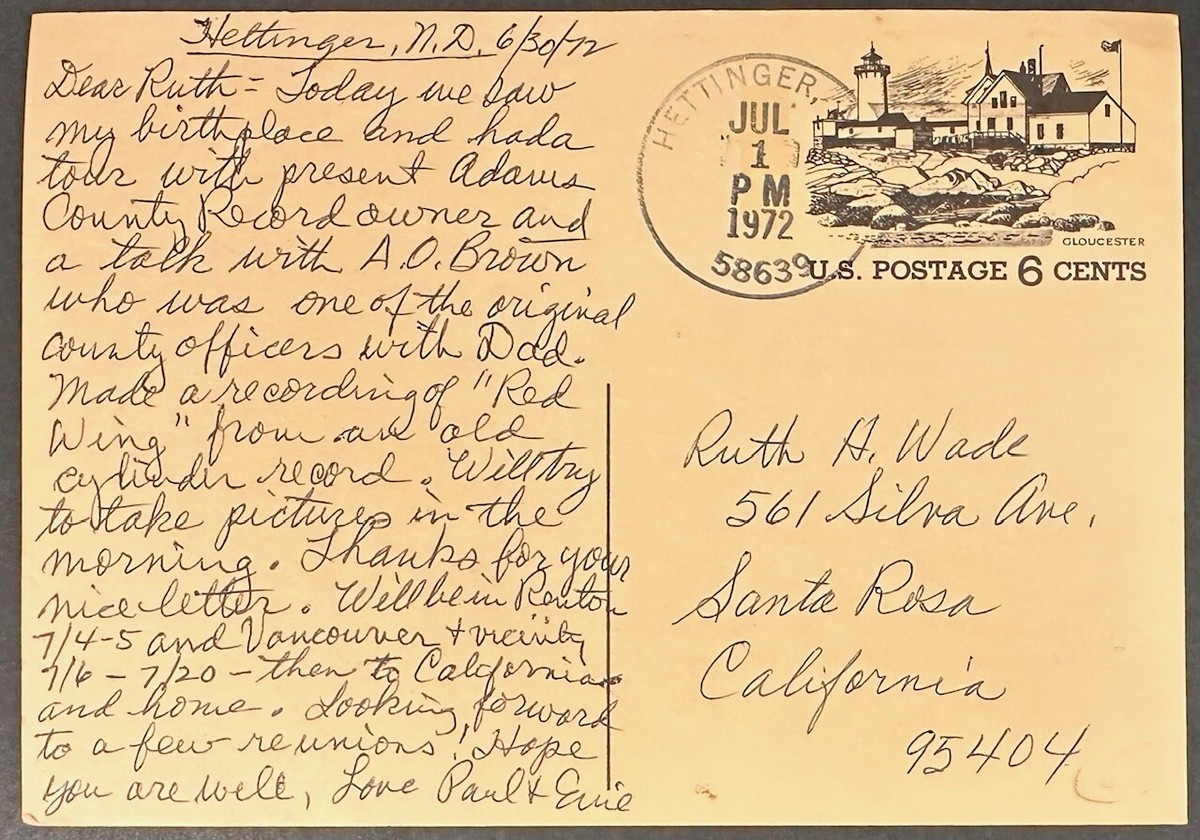 Hettinger, N.D. 6/30/72
Dear Ruth = Today we saw
my birthplace and had a
tour with present Adams
County Record owner and
a talk with A.O. Brown
who was one of the original
county officers with Dad.
Made a recording of "Red
Wing" from an old
cylinder record. Will try
to take pictures in the
morning. Thanks for your
nice letter. Will be in Renton
7/4-5 and Vancouver + vicinity
7/6 - 7/20 - then to California
and home. Looking forward
to a few reunions! Hope
you are well, Love Paul + Evie
HETTINGER,
JUL
1
PM
1972
58639
GLOUCESTER
U.S. POSTAGE 6 CENTS
Ruth H. Wade
561 Silva Ave,
Santa Rosa
California
95404